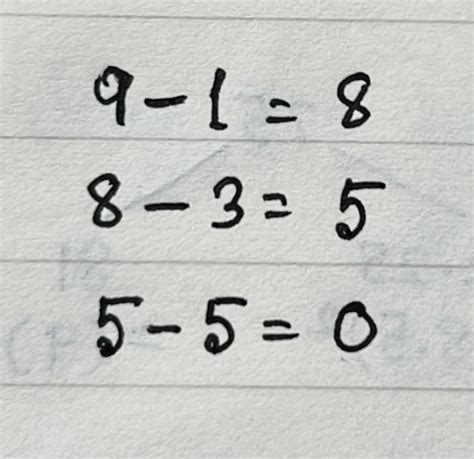 9 - 1 = 8
8 - 3 = 5
5 - 5 = 0